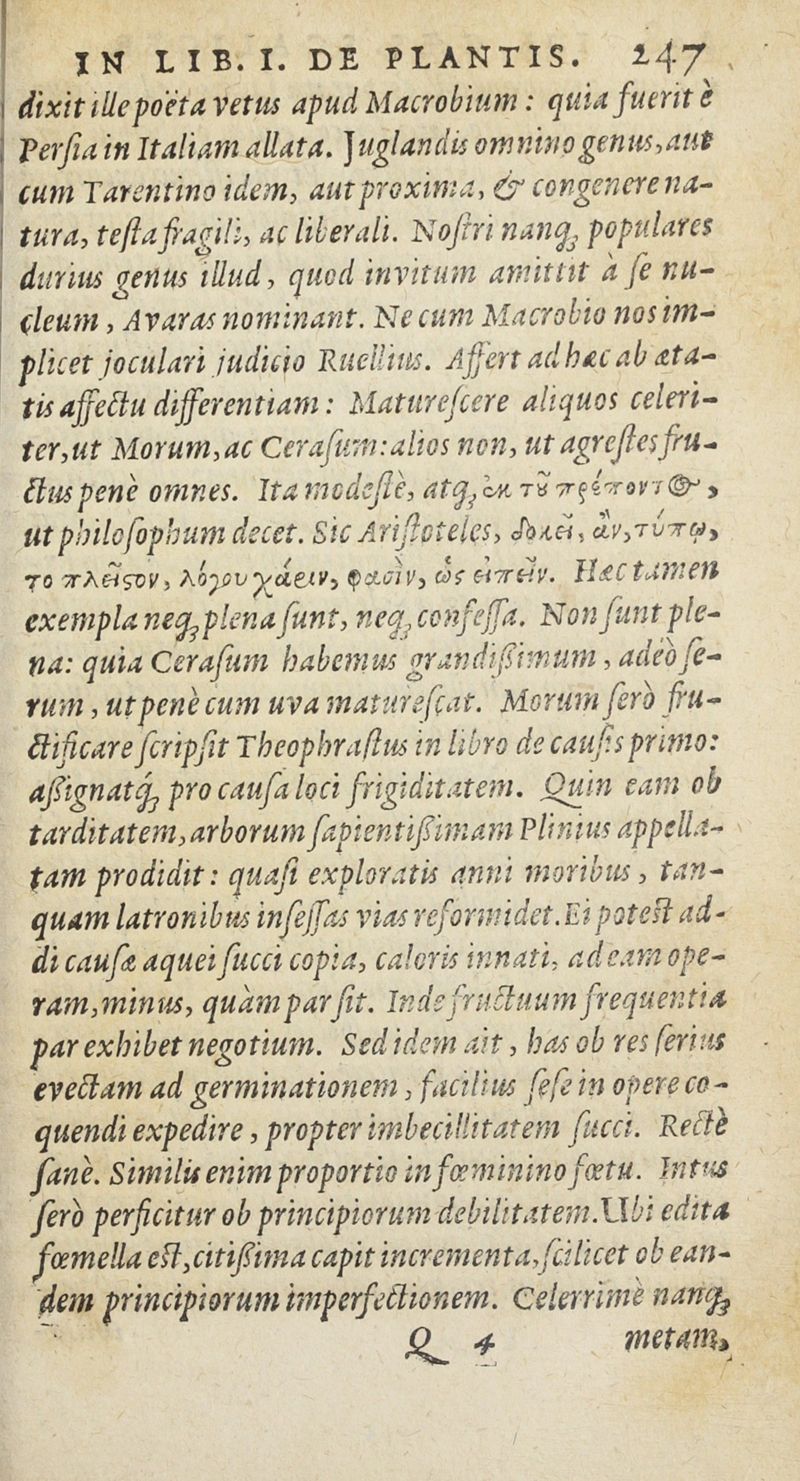 IN LIB. I. DE PLANTIS. 247
dixit ille poëta vetus apud Macrobium: quia fuerit è
Persia in Italiam allata. Juglandis omnino genus, aut
cum Tarentino idem, aut proxima, & congenere na-
tura, testa fragili, ac liberali. Nostri nanq; populares
durius genus illud, quod invitum amittit à se nu-
cleum, Avaras nominant. Ne cum Macrobio nos im-
plicet joculari judicio Ruellius. Affert ad hæc ab æta-
tis affectu differentiam: Maturescere aliquos celeri-
ter, ut Morum, ac Cerasum: alios non, ut agrestes fru-
ctus penè omnes. Ita modestè, atq; ἐκ τȣ̃ πρέποντ@,
ut philosophum decet. Sic Aristoteles, δοκεῖ, ἀν, τύπῳ,
το πλεῖϛον, λόγου χάειν, φασὶν, ὡς εἰπεῖν. Hæc tamen
exempla neq; plena sunt, neq; confessa. Non sunt ple-
na: quia Cerasum habemus grandissimum, adeò se-
rum, ut penè cum uva maturescat. Morum serò fru-
ctificare scripsit Theophrastus in libro de causis primo:
assignatq́; pro causa loci frigiditatem. Quin eam ob
tarditatem, arborum sapientissimam Plinius appella-
tam prodidit: quasi exploratis anni moribus, tan-
quam latronibus infessas vias reformidet. Ei potest ad-
di causæ aquei succi copia, caloris innati, ad eam ope-
ram, minus, quàm par sit. Inde fructuum frequentia
par exhibet negotium. Sed idem ait, has ob res serius
evectam ad germinationem, facilius sese in opere co-
quendi expedire, propter imbecillitatem succi. Rectè
sanè. Similis enim proportio in fœminino fœtu. Intus
serò perficitur ob principiorum debilitatem. Ubi edita
fœmella est, citissima capit incrementa, scilicet ob ean-
dem principiorum imperfectionem. Celerrimè nanq;
Q 4 metam,